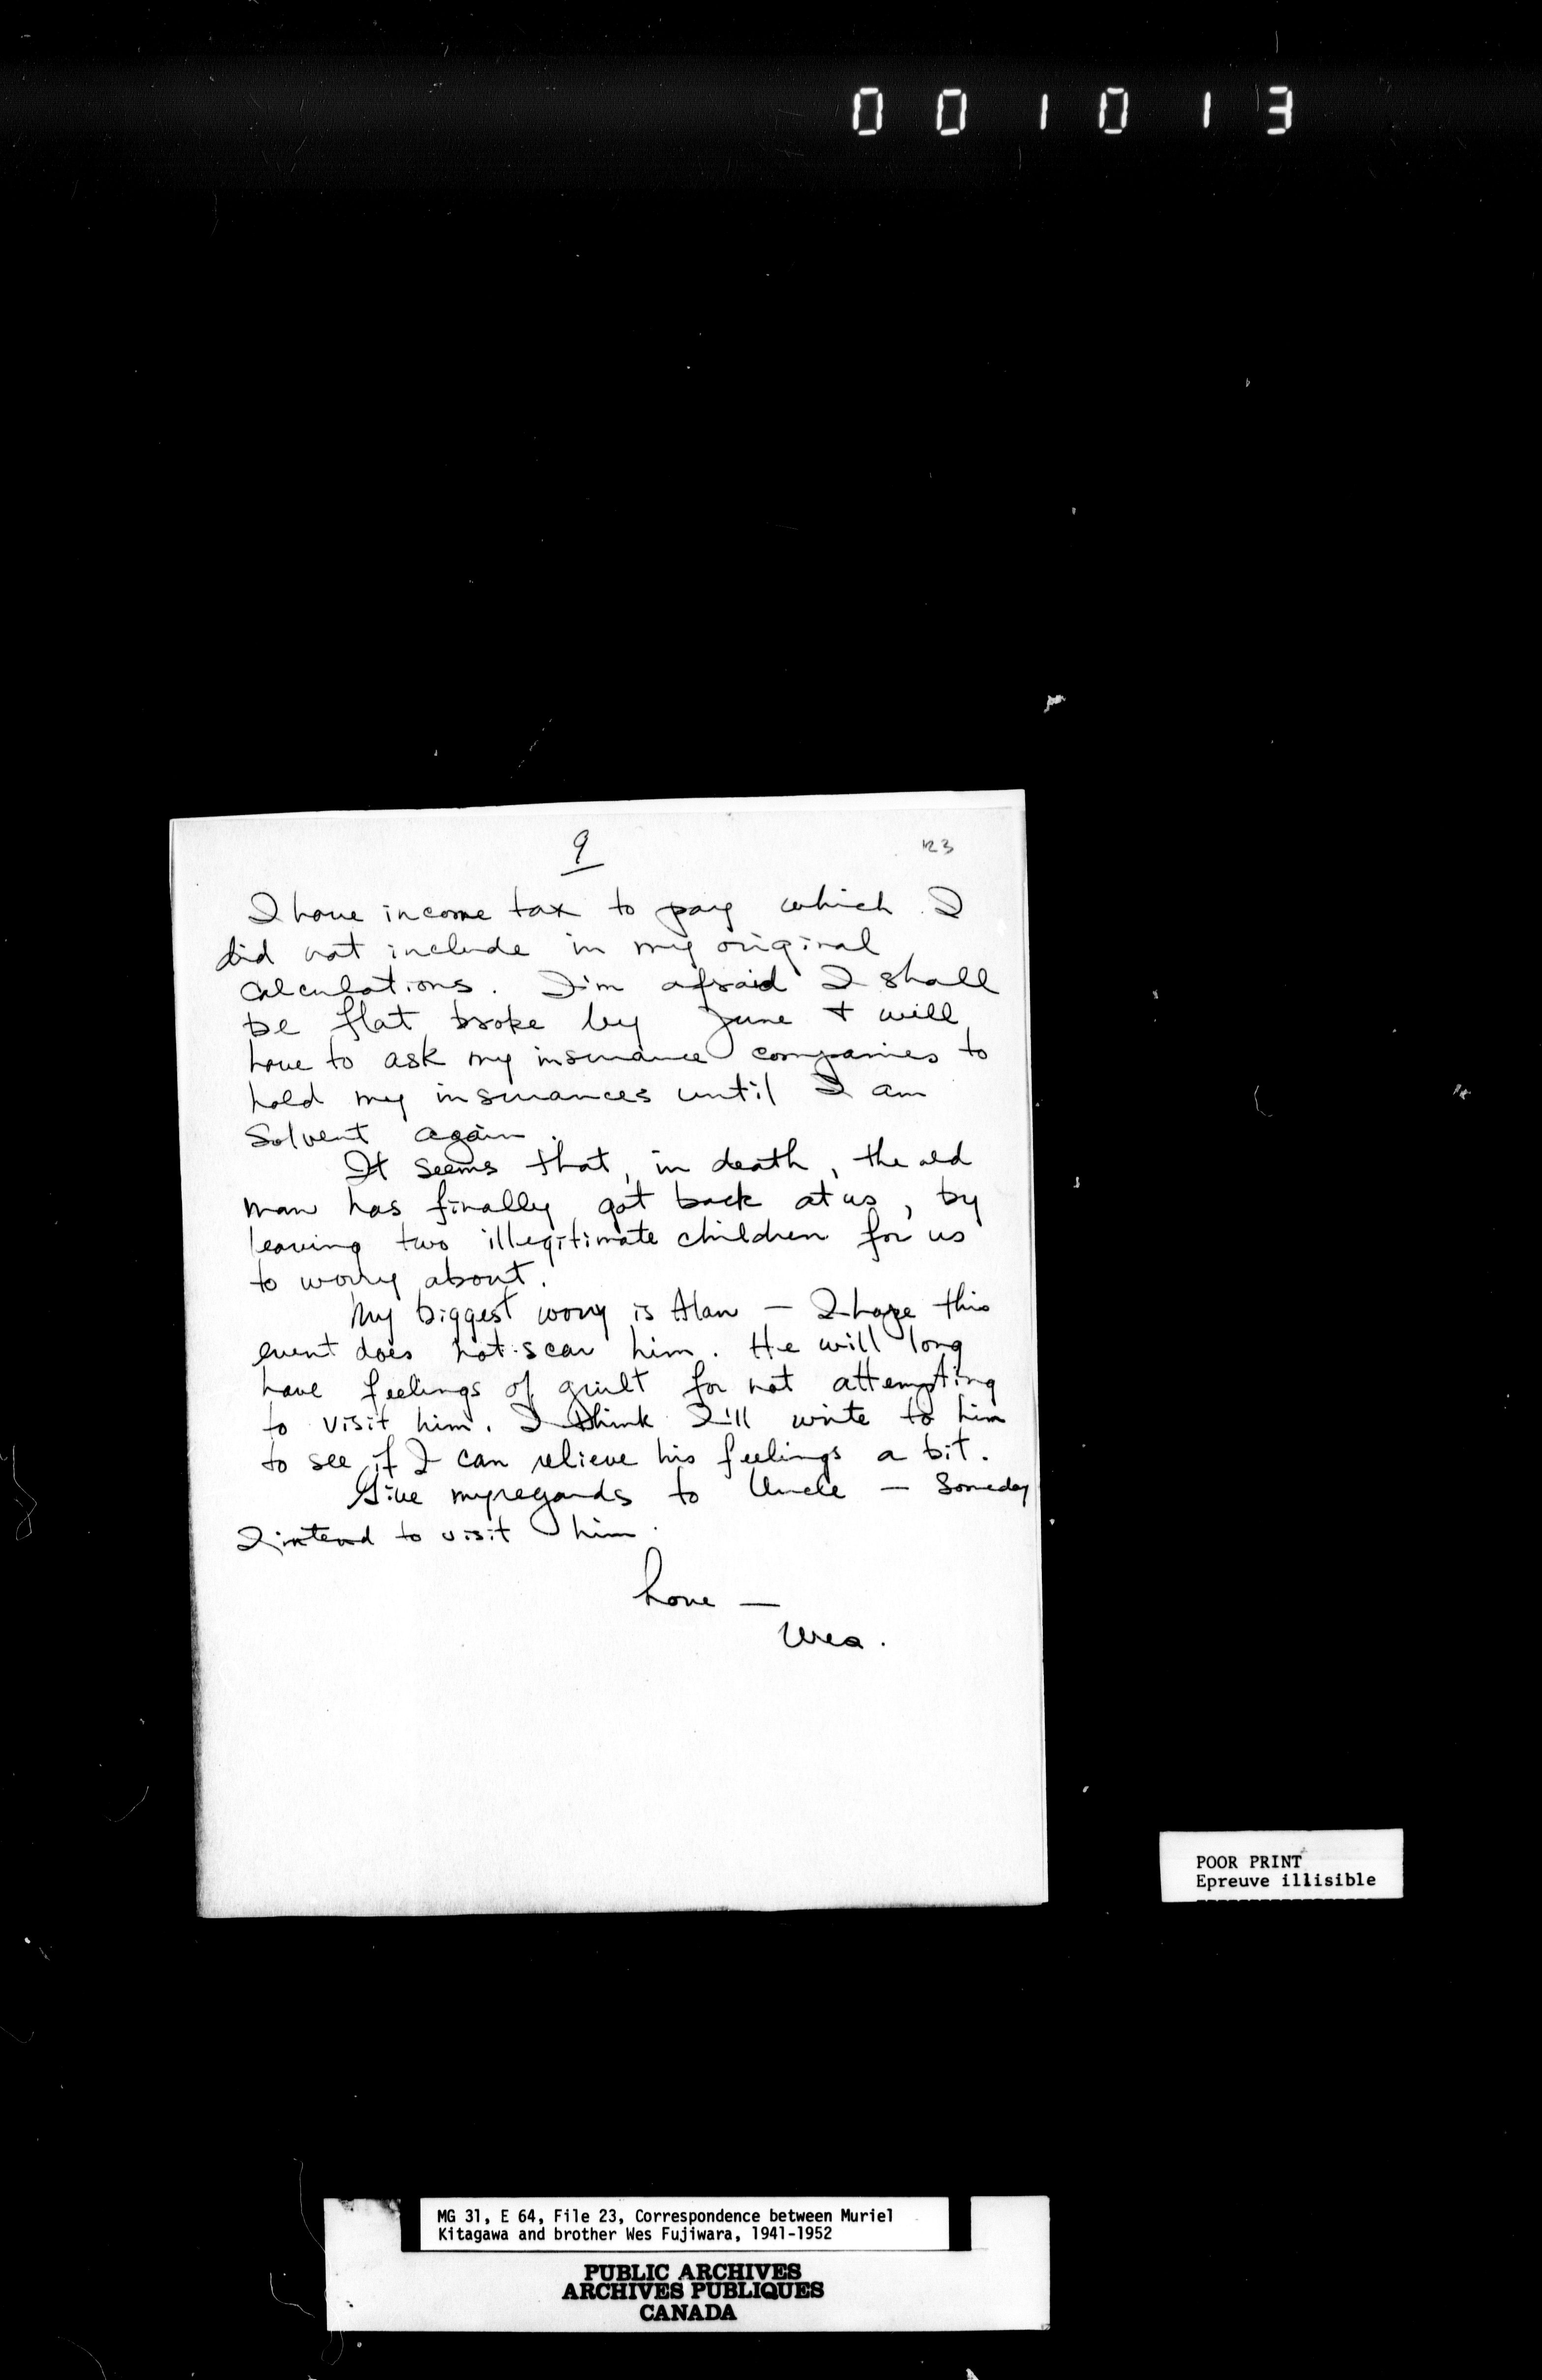 001013
9
123
I have income tax to pay which I
did not include in my original
calculations. I'm afraid I shall
be flat broke by June + will
have to ask my insurance companies to
hold my insurances until I am
solvent again.
It seems that, in death, the old
man has finally got back at us, by
leaving two illegitimate children for us
to worry about.
My biggest worry is Alan — I hope this
event does not scar him. He will long
have feelings of guilt for not attempting
to visit him. I think I'll write to him
to see if I can relieve his feelings a bit.
Give my regards to Uncle — Someday
I intend to visit him.
Love —
Wes.
POOR PRINT
Epreuve illisible
MG 31, E 64, File 23, Correspondence between Muriel
Kitagawa and brother Wes Fujiwara, 1941-1952
PUBLIC ARCHIVES
ARCHIVES PUBLIQUES
CANADA